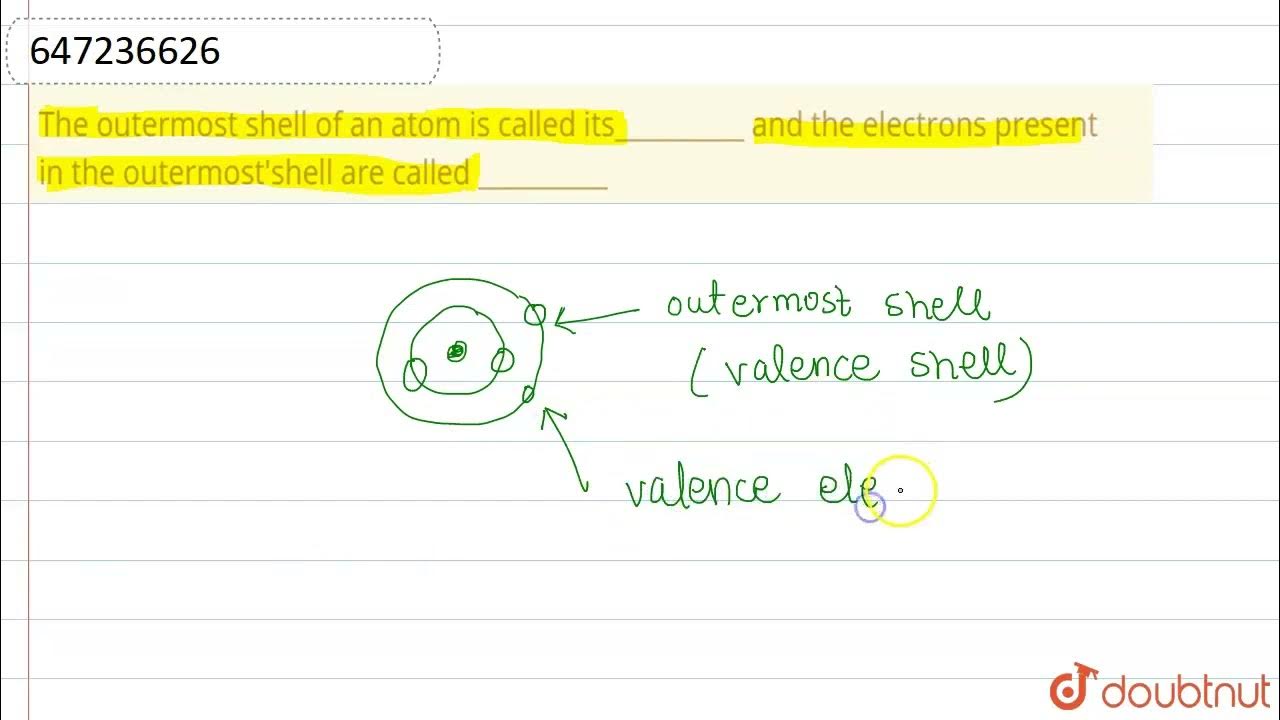 647236626
The outermost shell of an atom is called its__________ and the electrons present
in the outermost'shell are called __________
outermost shell
(valence shell)
valence ele
doubtnut